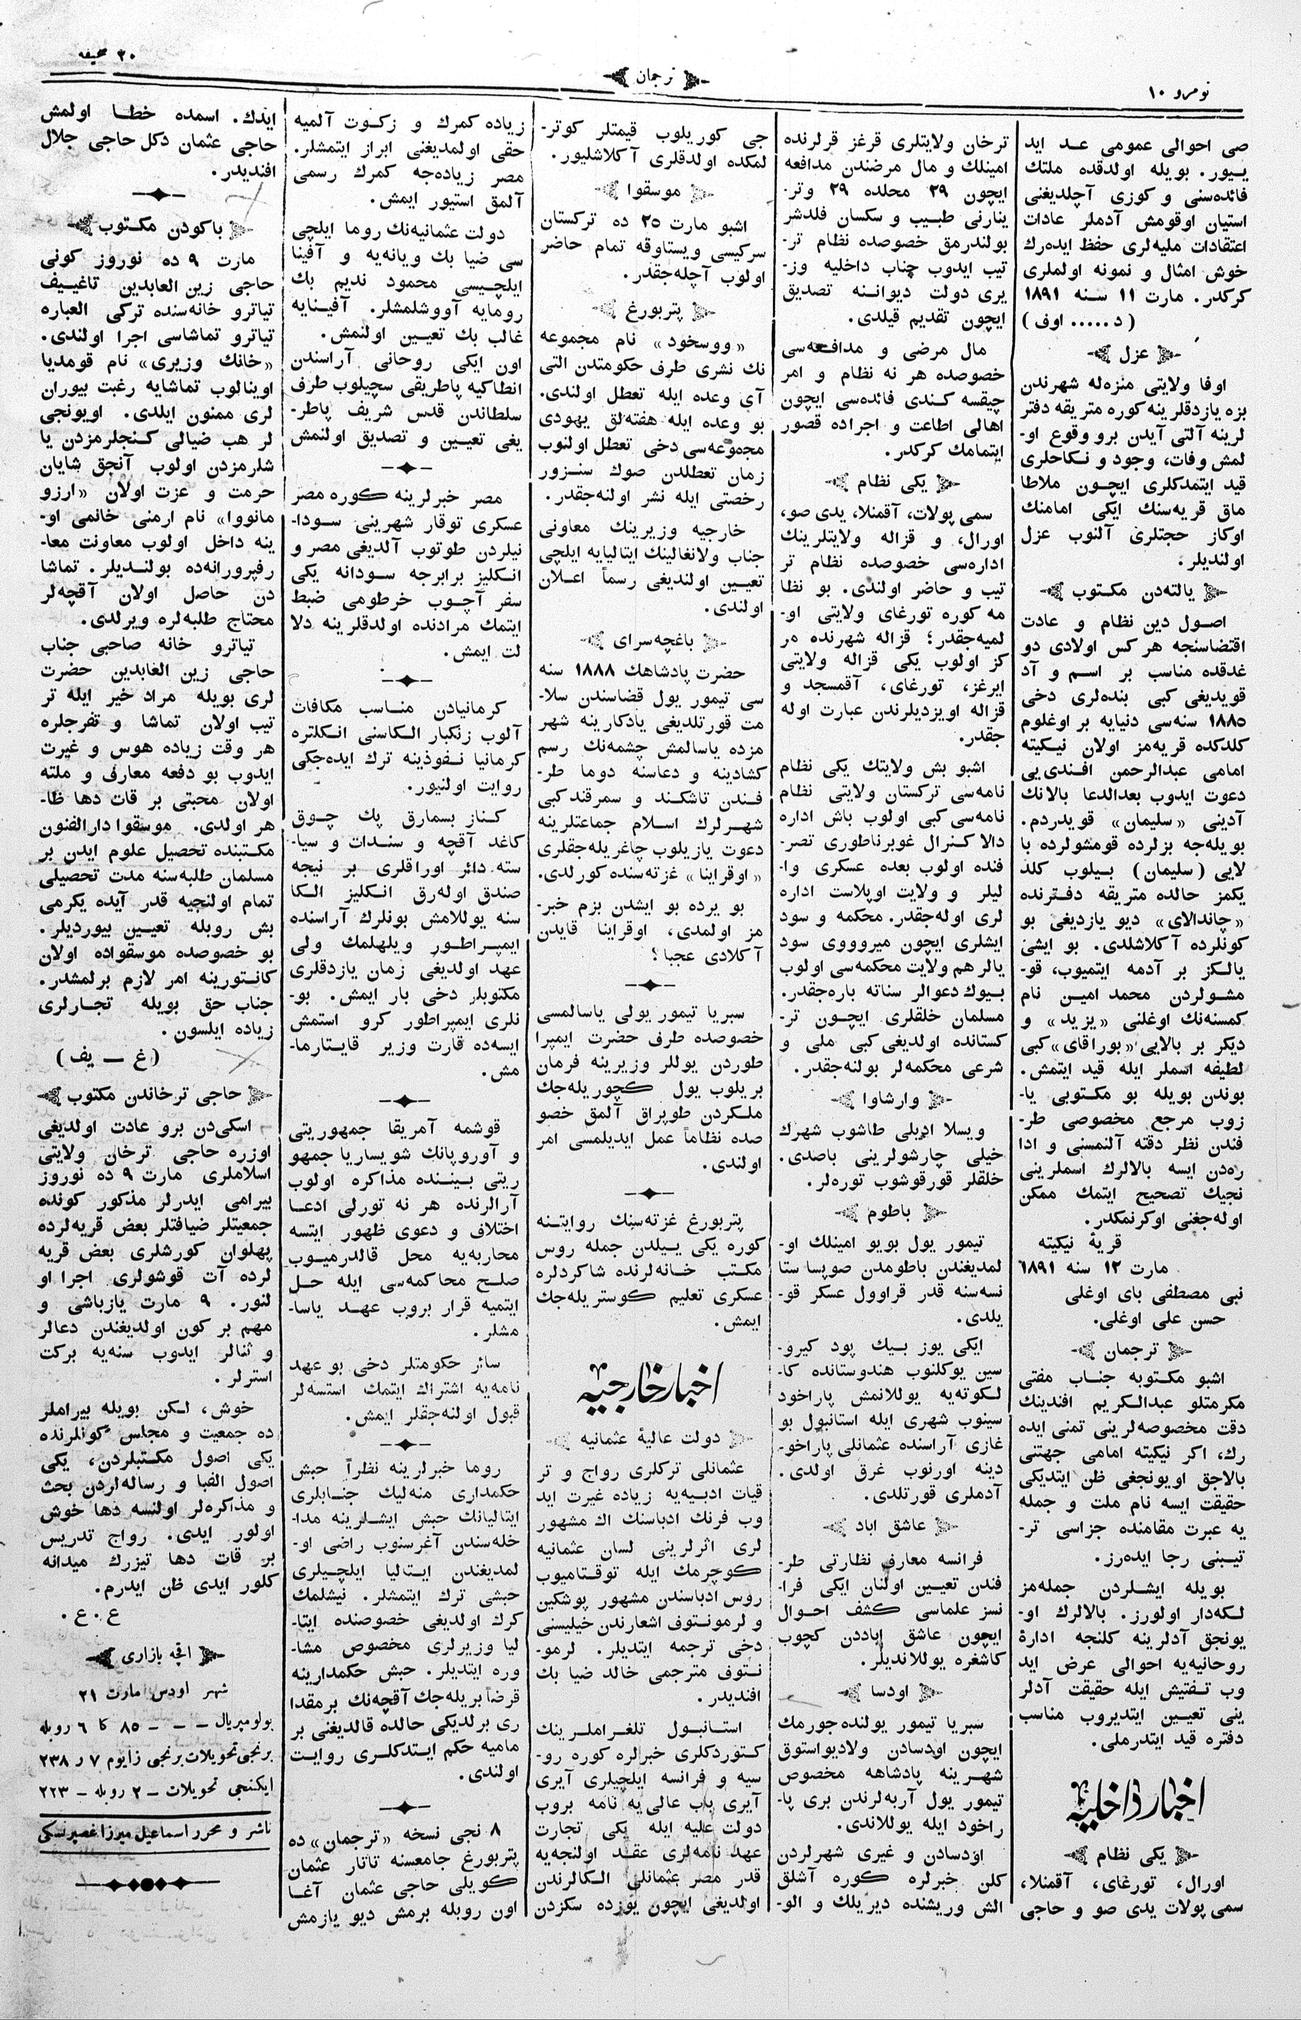 نومرو ١٠
ترجمان
٢٠ صحيفه
صى احوالى عمومى عد ايد
ييور. بويله اولدقده ملتك
فائده‌سنى و كوزى آچلديغنى
استيان اوقومش آدملر عادات
اعتقادات مليه‌لرى حفظ ايده‌رك
خوش امثال و نمونه اولملرى
كركدر. مارت ١١ سنه ١٨٩١
(د..... اوف)
عزل
اوفا ولايتى منزه‌له شهرندن
بزه يازدقلرينه كوره متريقه دفتر
لرينه آلتى آيدن برو وقوع او-
لمش وفات، وجود و نكاحلرى
قيد ايتمدكلرى ايچون ملاطا
ماق قريه‌سنك ايكى امامنك
اوكاز حجتلرى آلنوب عزل
اولنديلر.
يالته‌دن مكتوب
اصول دين نظام و عادت
اقتضاسنجه هر كس اولادى دو
غدقده مناسب بر اسم و آد
قويديغى كبى بنده‌لرى دخى
١٨٨٥ سنه‌سى دنيايه بر اوغلوم
كلدكده قريه‌مز اولان نيكيته
امامى عبدالرحمن افندى‌يى
دعوت ايدوب بعدالدعا بالانك
آدينى «سليمان» قويدردم.
بويله‌جه بزلرده قومشولرده با
لايى (سليمان) بيلوب كلد
يكمز حالده متريقه دفترنده
«چاندالاى» ديو يازديغى بو
كونلرده آكلاشلدى. بو ايشى
يالكز بر آدمه ايتميوب، قو-
مشولردن محمد امين نام
كمسنه‌نك اوغلنى «يزيد» و
ديكر بر بالايى «بوراقاى» كبى
لطيفه اسملر ايله قيد ايتمش.
بوندن بويله بو مكتوبى يا-
زوب مرجع مخصوصى طر-
فندن نظر دقته آلنمسنى و ادا
ره‌دن ايسه بالالرك اسملرينى
نجيك تصحيح ايتمك ممكن
اوله‌جغنى اوكرنمكدر.
قرية نيكيته
مارت ١٢ سنه ١٨٩١
نبى مصطفى باى اوغلى
حسن على اوغلى.
ترجمان
اشبو مكتوبه جناب مفتى
مكرمتلو عبدالكريم افندينك
دقت مخصوصه‌لرينى تمنى ايده
رك، اكر نيكيته امامى جهتنى
بالاجق اويونجغى ظن ايتديكى
حقيقت ايسه نام ملت و جمله
يه عبرت مقامنده جزاسى تر-
تيبنى رجا ايده‌رز.
بويله ايشلردن جمله‌مز
لكه‌دار اولورز. بالالرك او-
يونجق آدلرينه كلنجه ادارۀ
روحانيه‌يه احوالى عرض ايد
وب تفتيش ايله حقيقت آدلر
ينى تعيين ايتديروب مناسب
دفتره قيد ايتدرملى.
اخبار داخليه
يكى نظام
اورال، تورغاى، آقمنلا،
سمى پولات يدى صو و حاجى
ترخان ولايتلرى قرغز قرلرنده
امينلك و مال مرضندن مدافعه
ايچون ٢٩ محلده ٢٩ وتر-
ينارنى طبيب و سكسان فلدشر
بولندرمق خصوصده نظام تر-
تيب ايدوب جناب داخليه وز-
يرى دولت ديواننه تصديق
ايچون تقديم قيلدى.
مال مرضى و مدافعه‌سى
خصوصده هر نه نظام و امر
چيقسه كندى فائده‌سى ايچون
اهالى اطاعت و اجراده قصور
ايتمامك كركدر.
يكى نظام
سمى پولات، آقمنلا، يدى صو،
اورال، و قزاله ولايتلرينك
اداره‌سى خصوصده نظام تر
تيب و حاضر اولندى. بو نظا
مه كوره تورغاى ولايتى او-
لميه‌جقدر؛ قزاله شهرنده مر
كز اولوب يكى قزاله ولايتى
ايرغز، تورغاى، آقمسجد و
قزاله اويزديلرندن عبارت اوله
جقدر.
اشبو بش ولايتك يكى نظام
نامه‌سى تركستان ولايتى نظام
نامه‌سى كبى اولوب باش اداره
دالا كنرال غوبرناطورى تصر-
فنده اولوب بعده عسكرى وا-
ليلر و ولايت اوپلاست اداره
لرى اوله‌جقدر. محكمه و سود
ايشلرى ايچون ميروووى سود
يالر هم ولايت محكمه‌سى اولوب
بيوك دعوالر سناته باره‌جقدر.
مسلمان خلقلرى ايچون تر-
كستانده اولديغى كبى ملى و
شرعى محكمه‌لر بولنه‌جقدر.
وارشاوا
ويسلا ارديلى طاشوب شهرك
خيلى چارشولرينى باصدى.
خلقلر قورقوشوب توره‌لر.
باطوم
تيمور يول بويو امينلك او-
لمديغندن باطومدن صوپسا ستا
نسه‌سنه قدر قراوول عسكر قو-
يلدى.
ايكى يوز بيك پود كيرو-
سين يوكلنوب هندوستانده كا-
لكوته‌يه يوللانمش پاراخود
سينوب شهرى ايله استانبول بو
غازى آراسنده عثمانلى پاراخو-
دينه اورنوب غرق اولدى.
آدملرى قورتلدى.
عاشق اباد
فرانسه معارف نظارتى طر-
فندن تعيين اولنان ايكى فرا-
نسز علماسى كشف احوال
ايچون عاشق اباددن كچوب
كاشغره يوللانديلر.
اودسا
سبريا تيمور يولنده جورمك
ايچون اودسادن ولاديواستوق
شهرينه پادشاهه مخصوص
تيمور يول آربه‌لرندن برى پا-
راخود ايله يوللاندى.
اودسادن و غيرى شهرلردن
كلن خبرلره كوره آشلق
الش وريشنده ديريلك و الو-
جى كوريلوب قيمتلر كوتر-
لمكده اولدقلرى آكلاشليور.
موسقوا
اشبو مارت ٢٥ ده تركستان
سركيسى ويستاوقه تمام حاضر
اولوب آچله‌جقدر.
پتربورغ
«ووسخود» نام مجموعه
نك نشرى طرف حكومتدن التى
آى وعده ايله تعطل اولندى.
بو وعده ايله هفته‌لق يهودى
مجموعه‌سى دخى تعطل اولنوب
زمان تعطلدن صوك سنزور
رخصتى ايله نشر اولنه‌جقدر.
خارجيه وزيرينك معاونى
جناب ولانغالينك ايتاليايه ايلچى
تعيين اولنديغى رسماً اعلان
اولندى.
باغچه‌سراى
حضرت پادشاهك ١٨٨٨ سنه
سى تيمور يول قضاسندن سلا-
مت قورتلديغى يادكارينه شهر
مزده ياسالمش چشمه‌نك رسم
كشادينه و دعاسنه دوما طر-
فندن تاشكند و سمرقند كبى
شهرلرك اسلام جماعتلرينه
دعوت يازيلوب چاغريله‌جقلرى
«اوقراينا» غزته‌سنده كورلدى.
بو يرده بو ايشدن بزم خبر-
مز اولمدى، اوقراينا قايدن
آكلادى عجبا؟
سبريا تيمور يولى ياسالمسى
خصوصده طرف حضرت ايمپرا
طوردن يوللر وزيرينه فرمان
بريلوب يول كچوريله‌جك
ملكردن طوپراق آلمق خصو
صده نظاماً عمل ايديلمسى امر
اولندى.
پتربورغ غزته‌سنك روايتنه
كوره يكى ييلدن جمله روس
مكتب خانه‌لرنده شاكردلره
عسكرى تعليم كوستريله‌جك
ايمش.
اخبار خارجيه
دولت عاليۀ عثمانيه
عثمانلى تركلرى رواج و تر
قيات ادبيه‌يه زياده غيرت ايد
وب فرنك ادباسنك اك مشهور
لرى اثرلرينى لسان عثمانيه
كوچرمك ايله توقتاميوب
روس ادباسندن مشهور پوشكين
و لرمونتوف اشعارندن خيليسنى
دخى ترجمه ايتديلر. لرمو-
نتوف مترجمى خالد ضيا بك
افنديدر.
استانبول تلغراملرينك
كتوردكلرى خبرلره كوره رو-
سيه و فرانسه ايلچيلرى آيرى
آيرى باب عالى‌يه نامه بروب
دولت عليه ايله يكى تجارت
عهد نامه‌لرى عقد اولنجه‌يه
قدر مصر عثمانلى الكالرندن
اولديغى ايچون يوزده سكزدن
زياده كمرك و زكوت آلميه
حقى اولمديغنى ابراز ايتمشلر.
مصر زياده‌جه كمرك رسمى
آلمق استيور ايمش.
دولت عثمانيه‌نك روما ايلچى
سى ضيا بك ويانه‌يه و آفينا
ايلچيسى محمود نديم بك
رومايه آووشلمشلر. آفينايه
غالب بك تعيين اولنمش.
اون ايكى روحانى آراسندن
انطاكيه پاطريقى سچيلوب طرف
سلطاندن قدس شريف پاطر-
يغى تعيين و تصديق اولنمش
مصر خبرلرينه كوره مصر
عسكرى توقار شهرينى سودا-
نيلردن طوتوب آلديغى مصر و
انكليز برابرجه سودانه يكى
سفر آچوب خرطومى ضبط
ايتمك مرادنده اولدقلرينه دلا
لت ايمش.
كرمانيادن مناسب مكافات
آلوب زنكبار الكاسنى انكلتره
كرمانيا نفوذينه ترك ايده‌جكى
روايت اولنيور.
كناز بسمارق پك چوق
كاغد آقچه و سندات و سيا-
سته دائر اوراقلرى بر نيچه
صندق اوله‌رق انكليز الكا
سنه يوللامش بونلرك آراسنده
ايمپراطور ويلهلمك ولى
عهد اولديغى زمان يازدقلرى
مكتوبلر دخى بار ايمش. بو-
نلرى ايمپراطور كرو استمش
ايسه‌ده قارت وزير قايتارما-
مش.
قوشمه آمريقا جمهوريتى
و آوروپانك شويساريا جمهو
ريتى بيننده مذاكره اولوب
آرالرنده هر نه تورلى ادعا
اختلاف و دعوى ظهور ايتسه
محاربه‌يه محل قالدرميوب
صلح محاكمه‌سى ايله حل
ايتميه قرار بروب عهد ياسا-
مشلر.
سائر حكومتلر دخى بو عهد
نامه‌يه اشتراك ايتمك استسه‌لر
قبول اولنه‌جقلر ايمش.
روما خبرلرينه نظراً حبش
حكمدارى منه‌ليك جنابلرى
ايتاليانك حبش ايشلرينه مدا-
خله‌سندن آغرسنوب راضى او-
لمديغندن ايتاليا ايلچيلرى
حبشى ترك ايتمشلر. نيشلمك
كرك اولديغى خصوصنده ايتا-
ليا وزيرلرى مخصوص مشا-
وره ايتديلر. حبش حكمدارينه
قرضاً بريله‌جك آقچه‌نك برمقدا
رى برلديكى حالده قالديغنى بر
ماميه حكم ايتدكلرى روايت
اولندى.
٨ نجى نسخه «ترجمان» ده
پتربورغ جامعسنه تاتار عثمان
كويلى حاجى عثمان آغا
اون روبله برمش ديو يازمش
ايدك. اسمده خطا اولمش
حاجى عثمان دكل حاجى جلال
افنديدر.
باكودن مكتوب
مارت ٩ ده نوروز كونى
حاجى زين العابدين تاغييف
تياترو خانه‌سنده تركى العباره
تياترو تماشاسى اجرا اولندى.
«خانك وزيرى» نام قومديا
اوينالوب تماشايه رغبت بيوران
لرى ممنون ايلدى. اويونجى
لر هب ضيالى كنجلرمزدن يا
شلرمزدن اولوب آنجق شايان
حرمت و عزت اولان «ارزو
مانووا» نام ارمنى خانمى او-
ينه داخل اولوب معاونت معا-
رفپرورانه‌ده بولنديلر. تماشا
دن حاصل اولان آقچه‌لر
محتاج طلبه‌لره ويرلدى.
تياترو خانه صاحبى جناب
حاجى زين العابدين حضرت
لرى بويله مراد خير ايله تر
تيب اولان تماشا و تفرجلره
هر وقت زياده هوس و غيرت
ايدوب بو دفعه معارفى و ملته
اولان محبتى بر قات دها ظا-
هر اولدى. موسقوا دارالفنون
مكتبنده تحصيل علوم ايدن بر
مسلمان طلبه‌سنه مدت تحصيلى
تمام اولنجيه قدر آيده يكرمى
بش روبله تعيين بيورديلر.
بو خصوصده موسقواده اولان
كانتورينه امر لازم برلمشدر.
جناب حق بويله تجارلرى
زياده ايلسون.
(غ — يف)
حاجى ترخاندن مكتوب
اسكى‌دن برو عادت اولديغى
اوزره حاجى ترخان ولايتى
اسلاملرى مارت ٩ ده نوروز
بيرامى ايدرلر مذكور كونده
جمعيتلر ضيافتلر بعض قريه‌لرده
پهلوان كورشلرى بعض قريه
لرده آت قوشولرى اجرا او
لنور. ٩ مارت يازباشى و
مهم بر كون اولديغندن دعالر
و ثنالر ايدوب سنه‌يه بركت
استرلر.
خوش، لكن بويله بيراملر
ده جمعيت و مجلس كونلرنده
يكى اصول مكتبلردن، يكى
اصول الفبا و رساله‌لردن بحث
و مذاكره‌لر اولنسه دها خوش
اولور ايدى. رواج تدريس
بر قات دها تيزرك ميدانه
كلور ايدى ظن ايدرم.
ع. ع.
اقچه بازارى
شهر اودس مارت ٢١
بولومپريال - - - ٨٥ كا ٦ روبله
برنجى تحويلات برنجى زايوم ٧ ر ٢٣٨
ايكنجى تحويلات - ٢ روبله - ٢٢٣
ناشر و محرر اسماعيل ميرزا غصپرنسكى